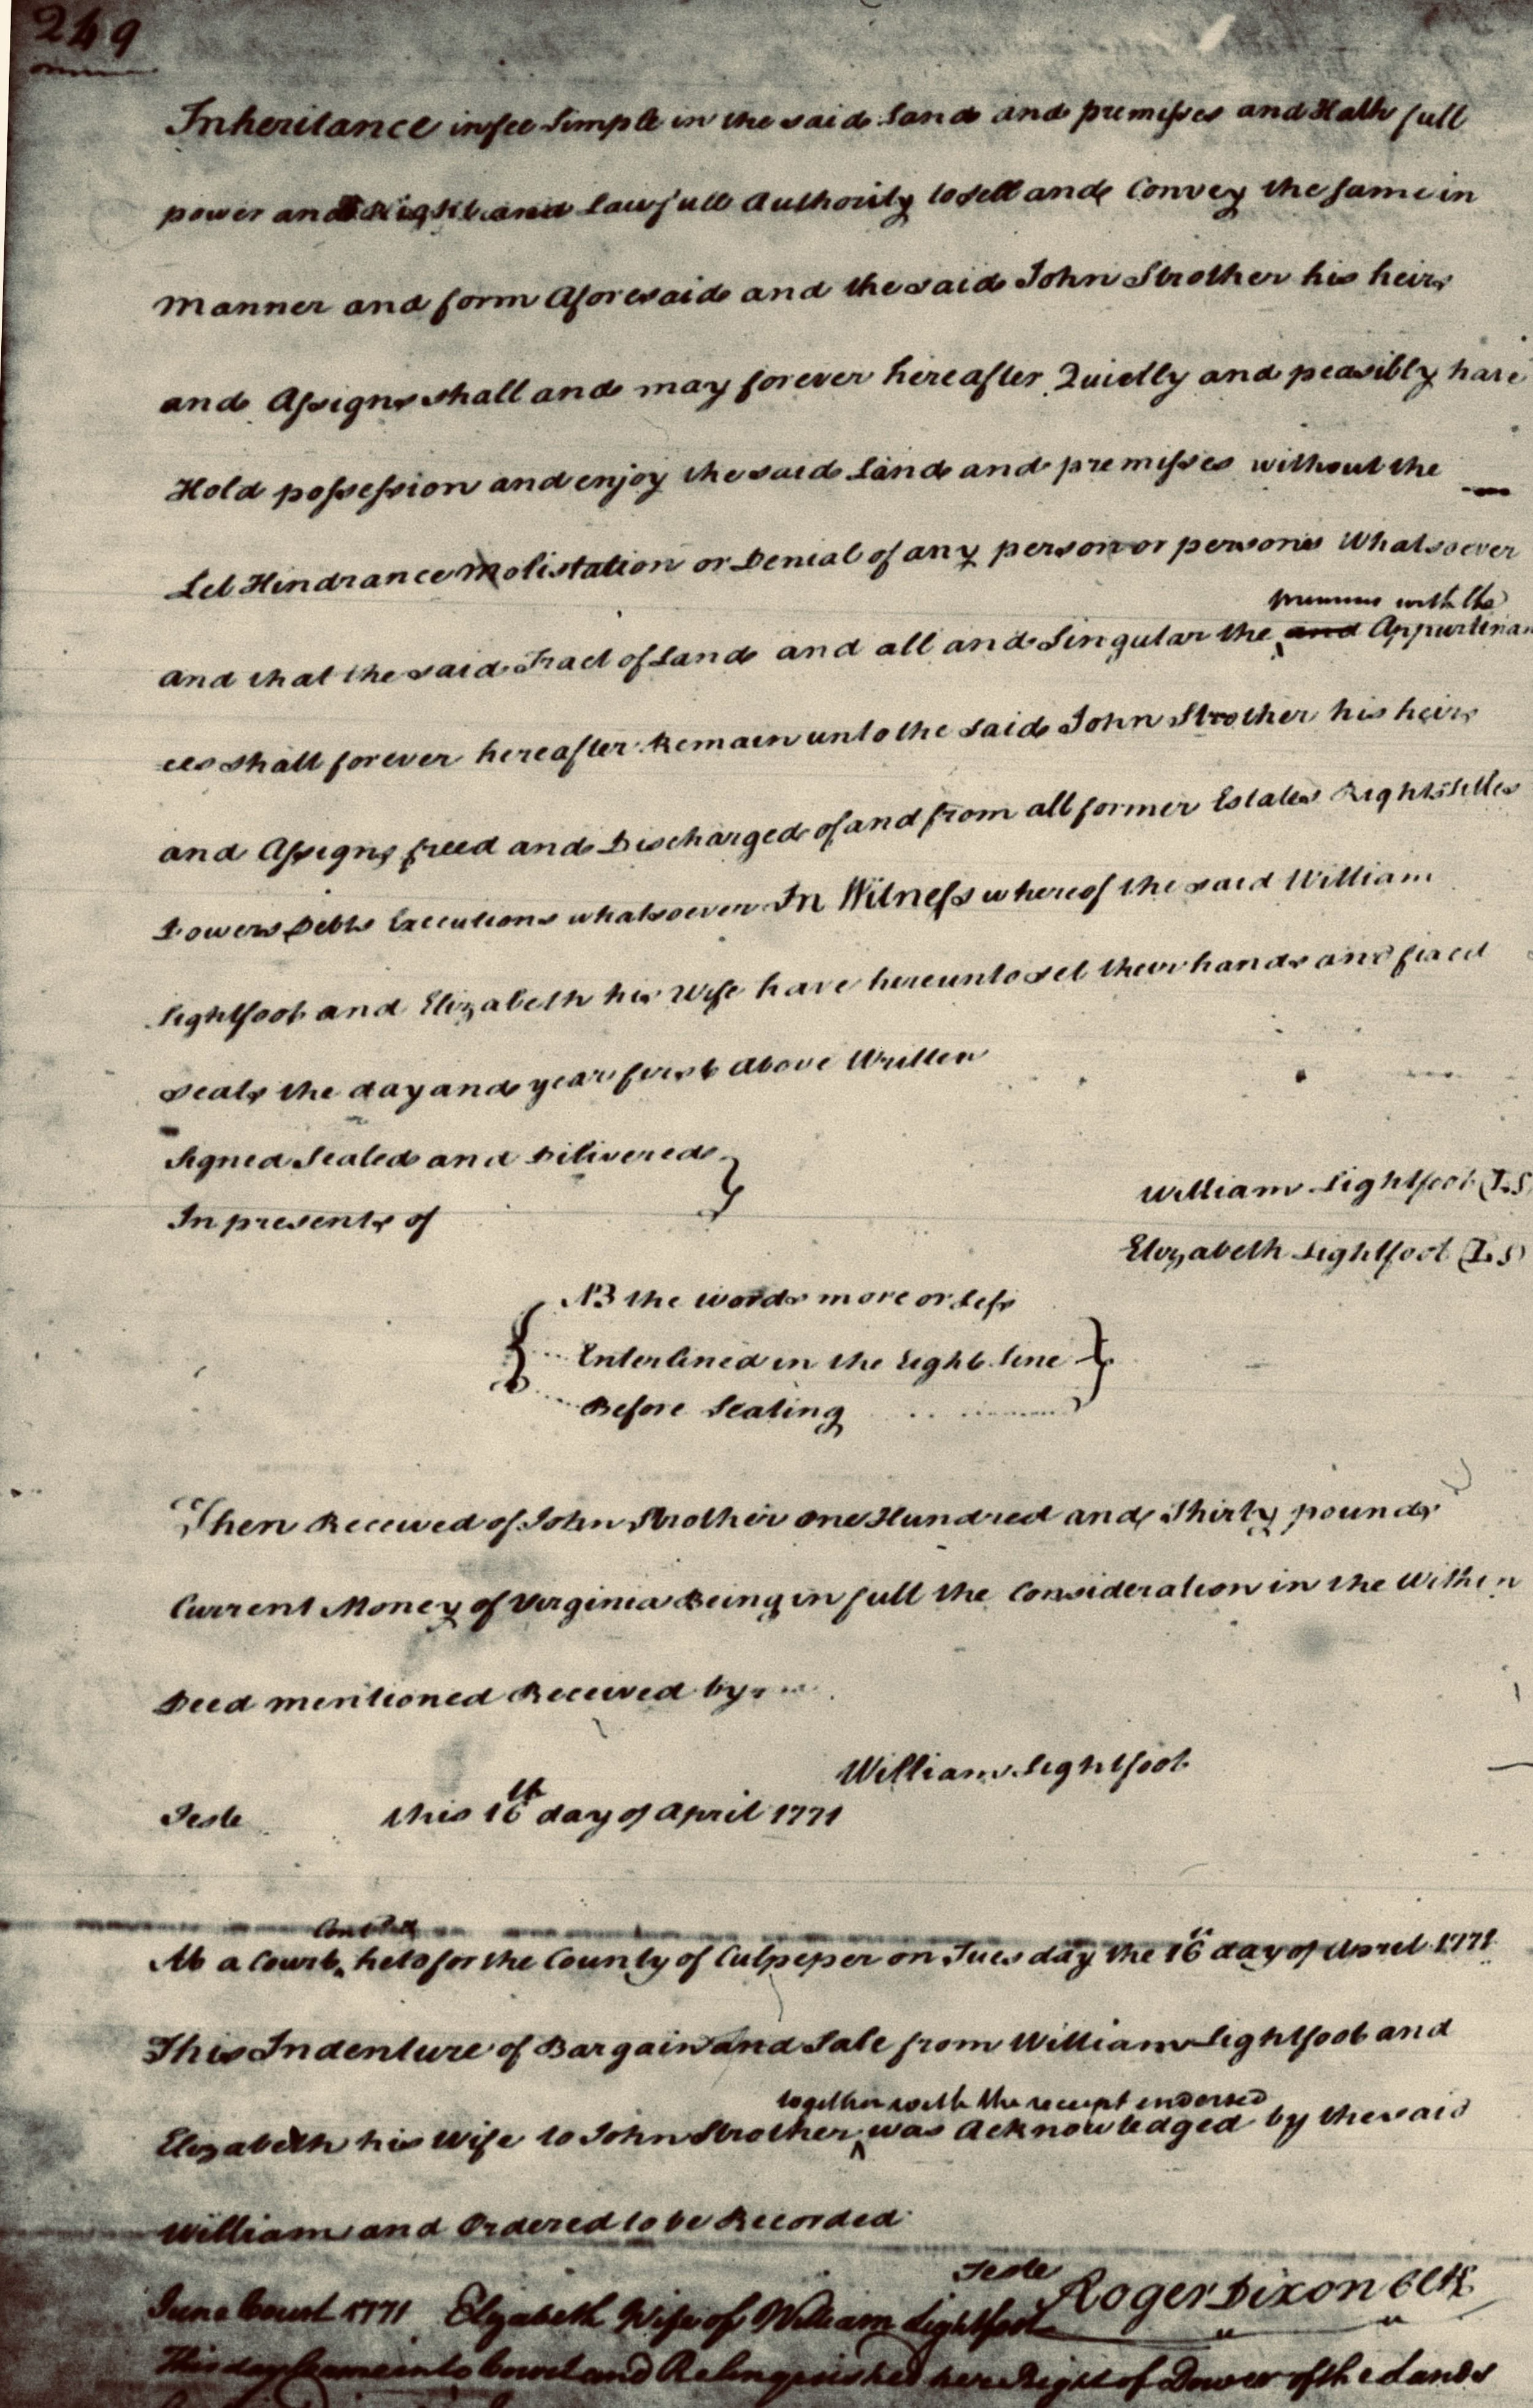 249
Inheritance in fee Simple in the said Land and premisses and Hath full
power and Right and Lawfull Authority to sell and Convey the same in
Manner and form Aforesaid and the said John Strother his heirs
and Assigns shall and may forever hereafter Quietly and peasibly have
Hold possession and enjoy the said Land and premisses without the
Let Hindrance Molistation or Denial of any person or persons Whatsoever
premises with the
and that the said Tract of Land and all and Singular the and Appurtinan
ces shall forever hereafter Remain unto the said John Strother his heirs
and Assigns freed and Discharged of and from all former Estates Rights titles
Dowers Debts Executions whatsoever In Witness whereof the said William
Lightfoot and Elizabeth his Wife have hereunto set their hands and fixed
seals the day and year first above Written
Signed Sealed and Dilivered
In presents of
William Lightfoot (L.S
Elizabeth Lightfoot (L.S)
NB the words more or Less
Enterlined in the Eight Line
Before Sealing
Then Received of John Strother One Hundred and Thirty pounds
Current Money of Virginia Being in full the Consideration in the Within
Deed mentioned Received by
William Lightfoot
Teste this 16th day of April 1771
At a Court held for the County of Culpeper on Tuesday the 16th day of April 1771
This Indenture of Bargain and Sale from William Lightfoot and
together with the receipt endorsed
Elizabeth his Wife to John Strother was Acknowledged by the said
William and Ordered to be Recorded
Teste Roger Dixon Clk
June Court 1771 Elizabeth Wife of William Lightfoot
This day Came into Court and Relinquished her Right of Dower of the Lands